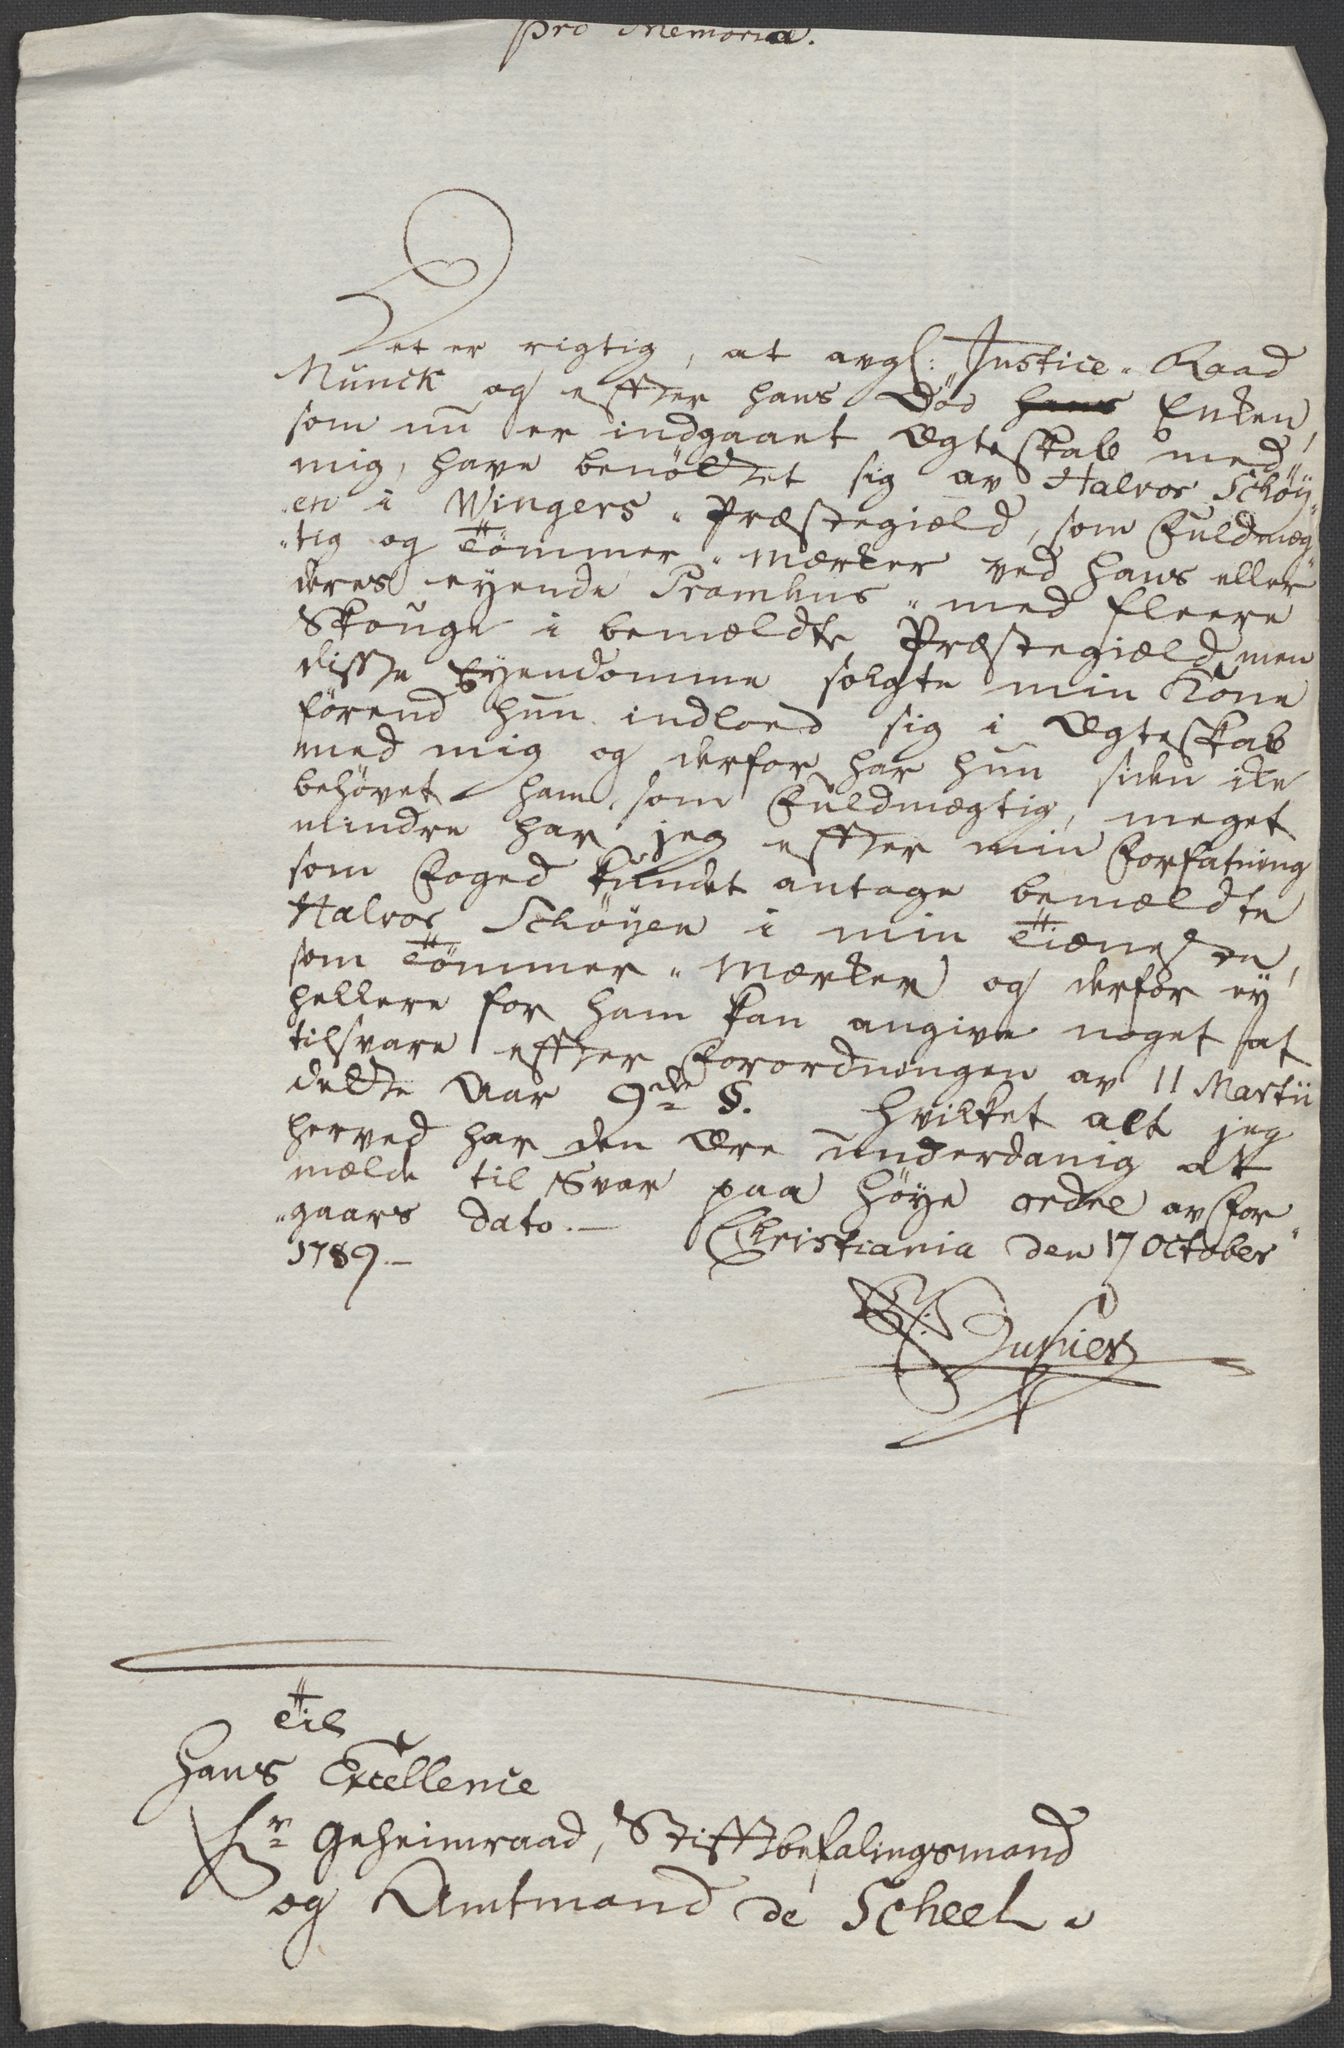 Pro Memoria.
Det er rigtig, at avgl: Justice-Raad
Munck og effter hans Død hans Enken,
som nu er indgaaet Ægteskab med
mig, have benöttet sig av Halvor Schöy-
en i Wingers-Præstegield, som Fuldmæg-
tig og Tömmer-Mærker ved hans eller
deres eyende med fleere
Skouge i bemældte Præstegield, men
disse Eyendomme solgte min Kone
förend hun indloed sig i Ægteskab
med mig og derfor har hun siden ike
behövet ham som Fuldmægtig, meget
mindre har jeg effter min Forfatning
som Foged kundet antage bemældte
Halvor Schöyen i min Tieneste,
som Tömmer-Mærker og derfor ey
hellere for ham kan angive noget at
tilsvare effter Forordningen av 11 Martii
dette Aar 9de §. hvilket alt jeg
herved har den Ære underdanig at
mælde til Svar paa höye ordre av for-
gaars dato.— Christiania den 17 October
1789.—
Til
Hans Excellence
Hr Geheimraad, Stifftbefalingsmand
og Amtmand de Scheel.